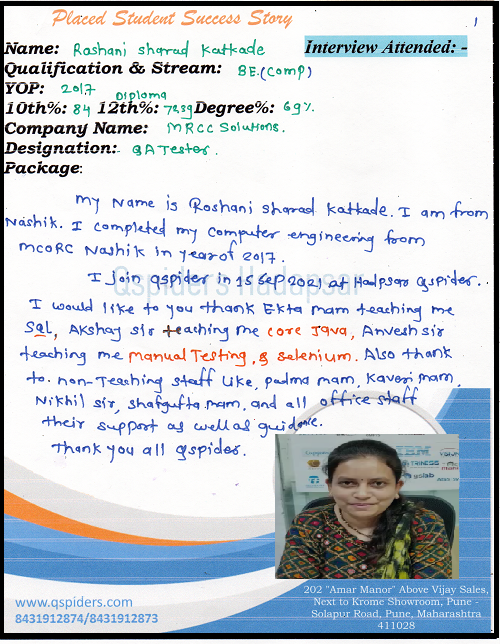 Placed Student Success Story
1
Name: Roshani sharad Katkade
Interview Attended: -
Qualification & Stream: BE.(comp)
YOP: 2017
Diploma
10th%: 84 12th%: 7239 Degree%: 69%
Company Name: MRCC Solutions.
Designation: QA Tester.
Package:
my Name is Roshani sharad Katkade. I am from
Nashik. I completed my computer engineering from
MCORC Nashik in year of 2017.
I join qspider in 15 sep 2021 at Hadpsar Qspider..
Qspiders Hadapsar
I would like to you thank Ekta mam teaching me
Sql, Akshay sir teaching me core Java, Anvesh sir
teaching me manual Testing, & selenium. Also thank
to non-Teaching staff like, padma mam, Kaveri mam,
Nikhil sir, shafgufta mam, and all office staff
their support as well as guidance.
Thank you all qspider.
202 "Amar Manor" Above Vijay Sales,
Next to Krome Showroom, Pune -
Solapur Road, Pune, Maharashtra
411028
www.qspiders.com
8431912874/8431912873